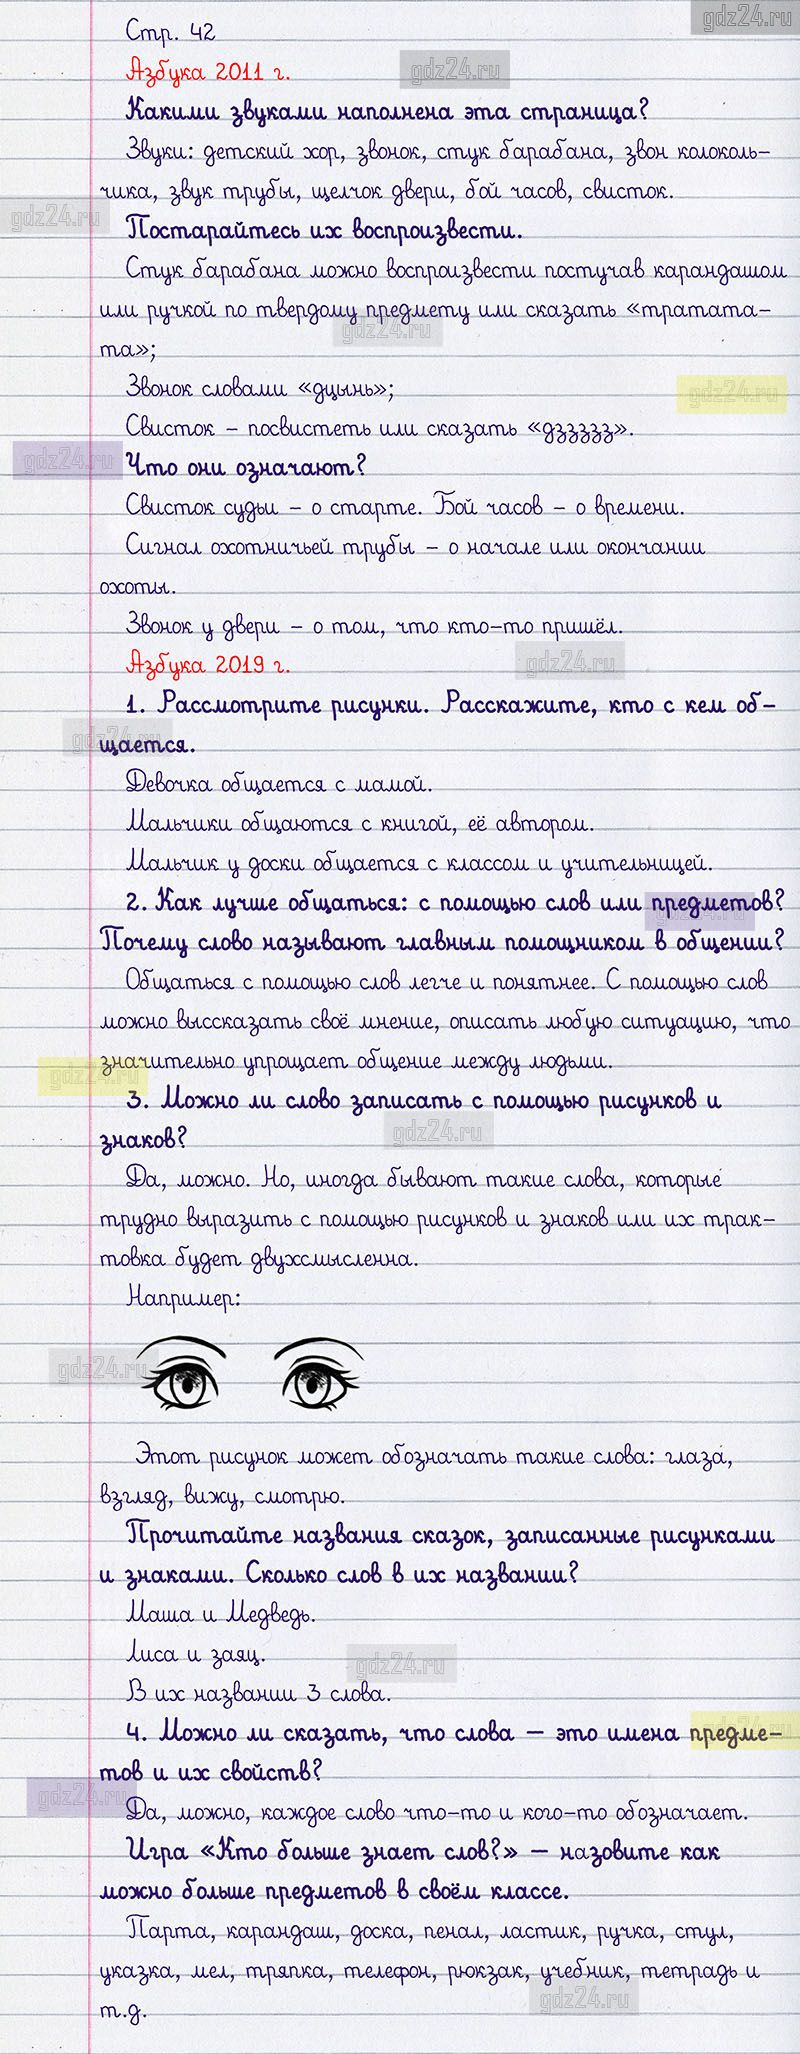 gdz24.ru
Стр. 42
Азбука 2011 г.
gdz24.ru
Какими звуками наполнена эта страница?
Звуки: детский хор, звонок, стук барабана, звон колоколь-
чика, звук трубы, щелчок двери, бой часов, свисток.
gdz24.ru
Постарайтесь их воспроизвести.
Стук барабана можно воспроизвести постучав карандашом
или ручкой по твердому предмету или сказать «тратата-
gdz24.ru
та»;
Звонок словами «дцынь»;
gdz24.ru
Свисток – посвистеть или сказать «дззззз».
gdz24.ru
Что они означают?
Свисток судьи – о старте. Бой часов – о времени.
Сигнал охотничьей трубы – о начале или окончании
охоты.
Звонок у двери – о том, что кто-то пришёл.
Азбука 2019 г.
gdz24.ru
1. Рассмотрите рисунки. Расскажите, кто с кем об-
gdz24.ru
щается.
Девочка общается с мамой.
Мальчики общаются с книгой, её автором.
Мальчик у доски общается с классом и учительницей.
2. Как лучше общаться: с помощью слов или предметов?
gdz24.ru
Почему слово называют главным помощником в общении?
Общаться с помощью слов легче и понятнее. С помощью слов
можно высказать своё мнение, описать любую ситуацию, что
значительно упрощает общение между людьми.
gdz24.ru
3. Можно ли слово записать с помощью рисунков и
gdz24.ru
знаков?
Да, можно. Но, иногда бывают такие слова, которые
трудно выразить с помощью рисунков и знаков или их трак-
товка будет двухсмысленна.
Например:
gdz24.ru
Этот рисунок может обозначать такие слова: глаза,
взгляд, вижу, смотрю.
Прочитайте названия сказок, записанные рисунками
и знаками. Сколько слов в их названии?
Маша и Медведь.
Лиса и заяц.
gdz24.ru
В их названии 3 слова.
4. Можно ли сказать, что слова — это имена предме-
gdz24.ru
тов и их свойств?
gdz24.ru
Да, можно, каждое слово что-то и кого-то обозначает.
Игра «Кто больше знает слов?» — назовите как
можно больше предметов в своём классе.
Парта, карандаш, доска, пенал, ластик, ручка, стул,
указка, мел, тряпка, телефон, рюкзак, учебник, тетрадь и
gdz24.ru
т.д.